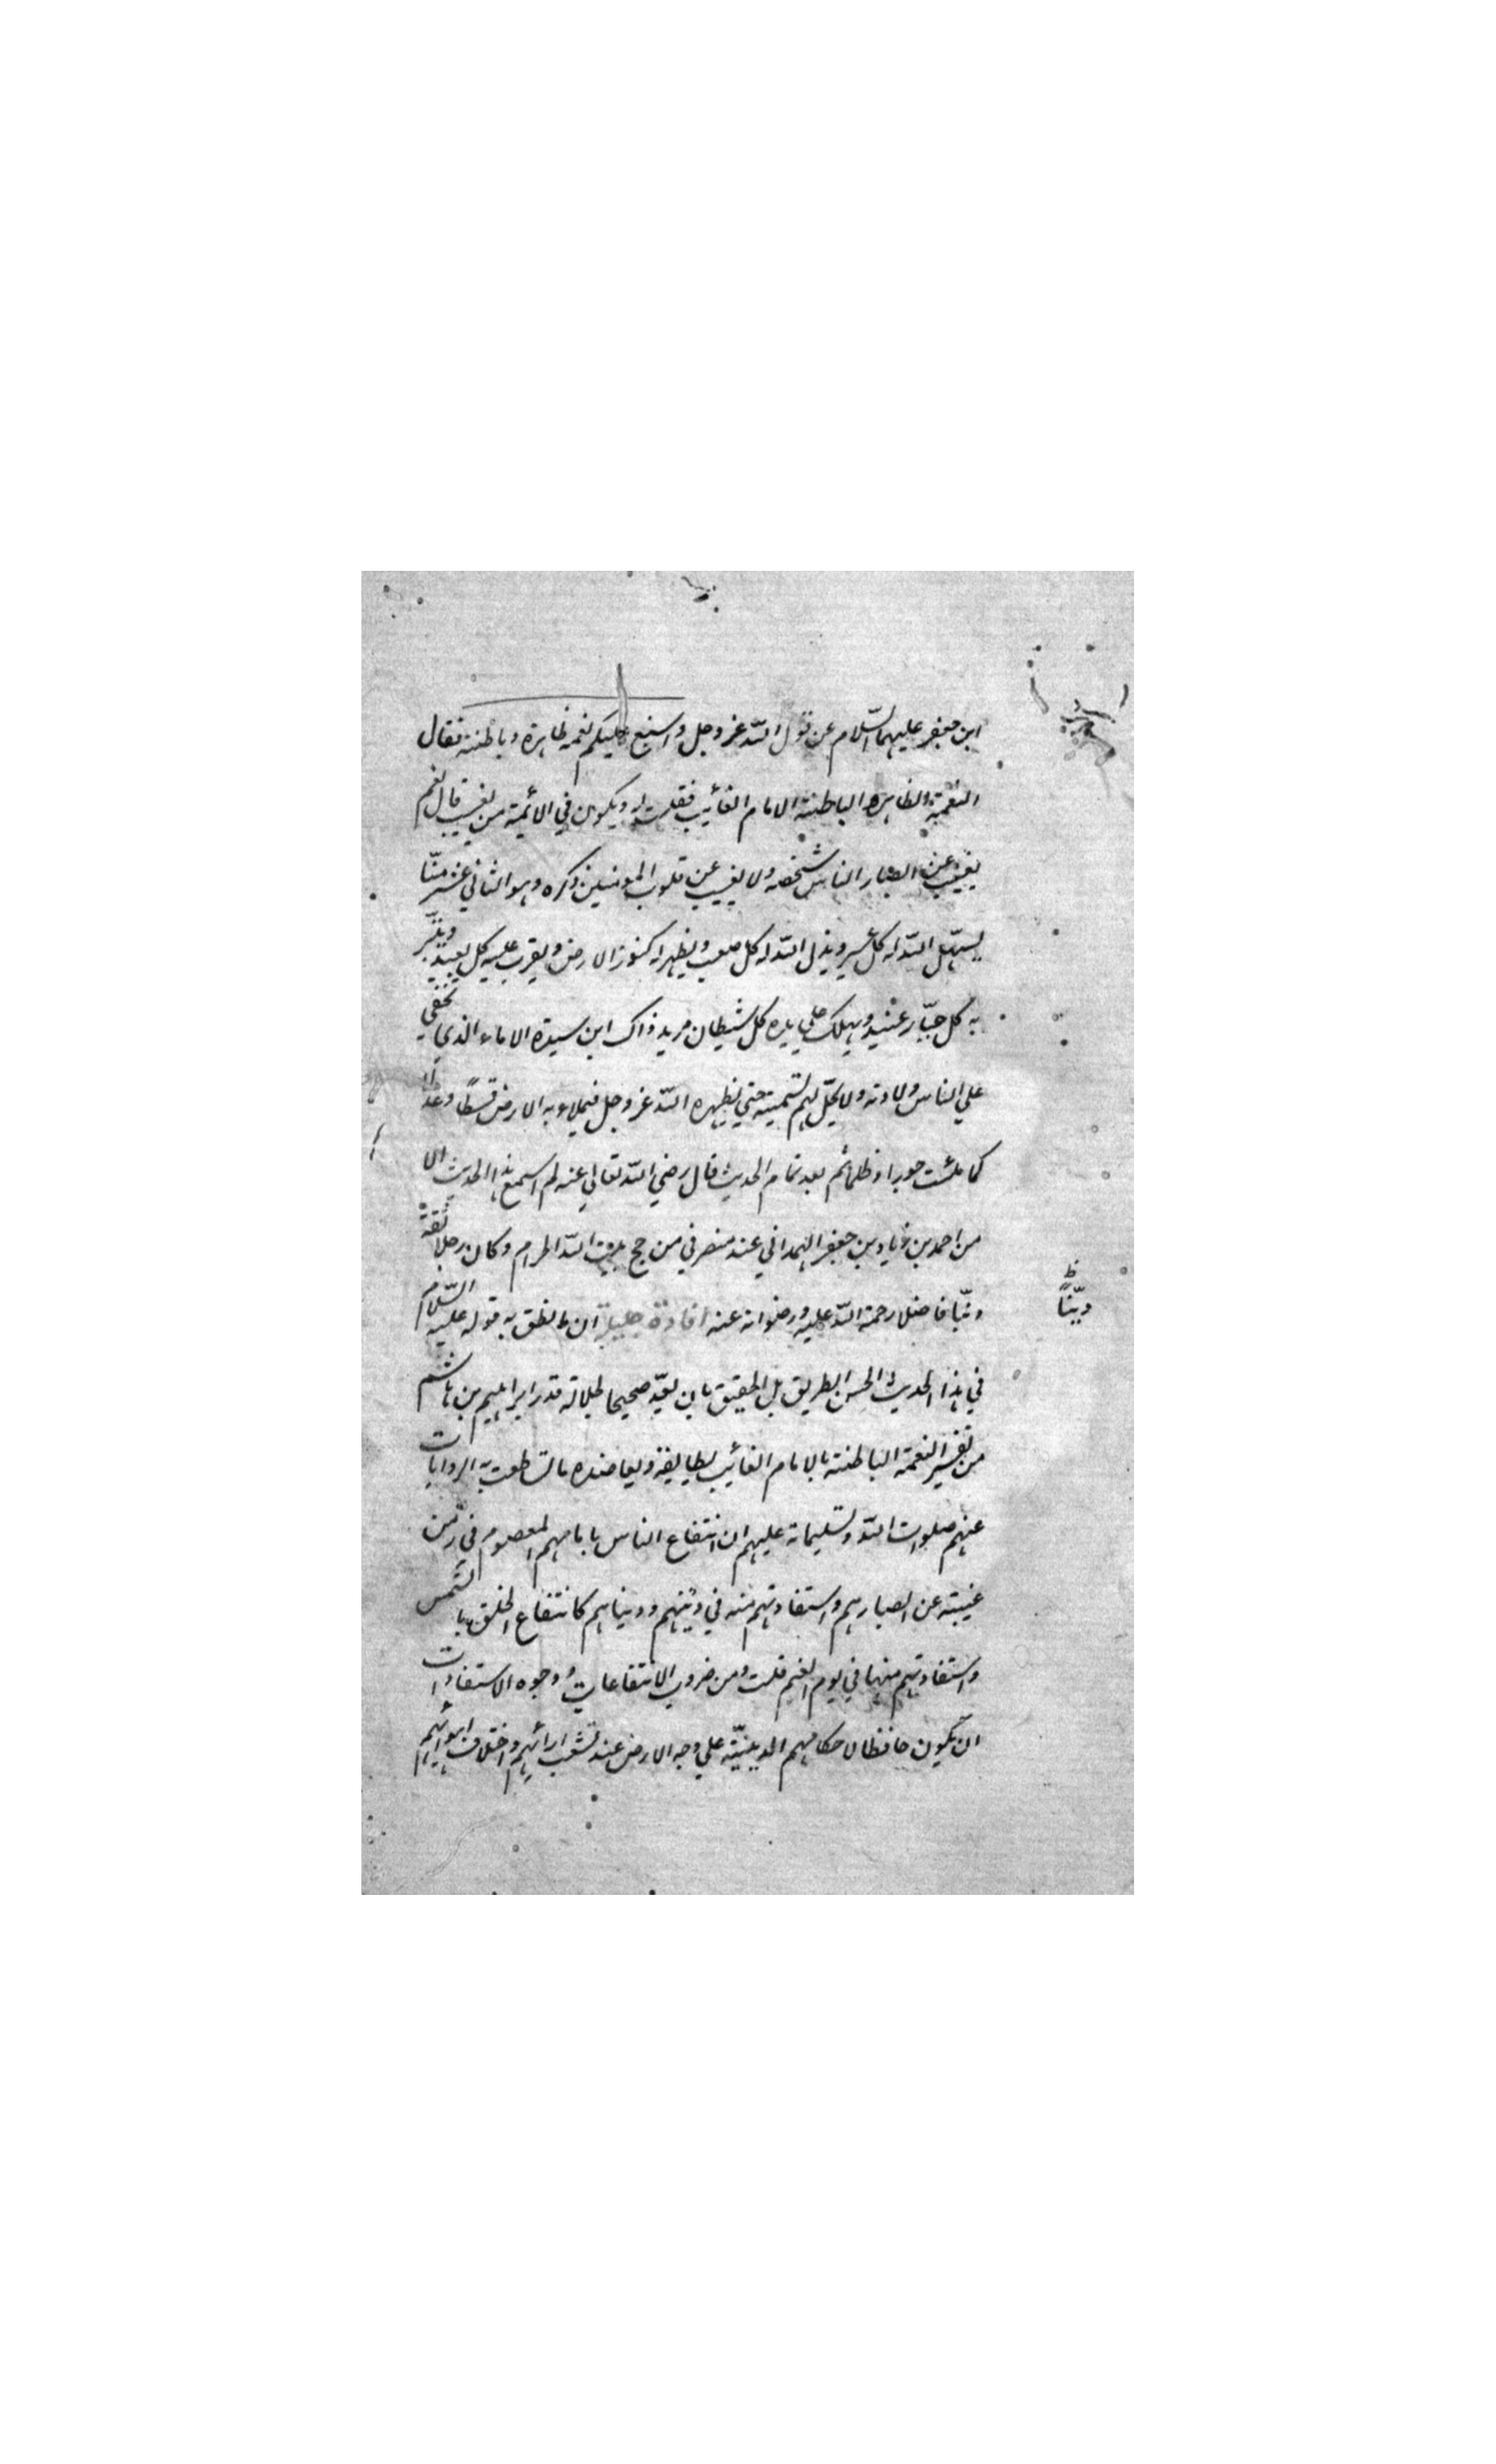 ابن جعفر عليهما السّلام عن قول اللّه عز وجل واسبغ عليكم نعمه ظاهرة وباطنة فقال
النعمة الظاهرة الباطنة الامام الغائب فقلت له ويكون في الائمة من يغيب قال نعم
يغيب عن ابصار الناس شخصه ولا يغيب عن قلوب المؤمنين ذكره وهو الثاني عشر منّا
يسهّل اللّه له كل عسير ويذلل اللّه له كل صعب ويظهر له كنوز الارض ويقرب عليه كل بعيد ويتبّر
به كل جبّار عنيد ويهلك علي يده كل شيطان مريد ذاك ابن سيدة الاماء الذي يخفي
علي الناس ولادته ولا يحلّ لهم تسميته حتي يظهره اللّه عز وجل فيملاء به الارض قسطًا وعدلًا
كما ملئت جورا وظلما ثم بعد تمام الحديث قال رضي اللّه تعالي عنه لم اسمع هذا الحديث الا
من احمد بن زياد بن جعفر الهمداني عند منصرفي من حج بيت اللّه الحرام وكان رجلا ثقةً
دبّنا فاضلا رحمة اللّه عليه ورضوانه عنه افادة جليلة ان ما نطق به قوله عليه السّلام
في هذا الحديث الحسن الطريق بل الحقيق بان يعدّ صحيحا لجلالة قدر ابراهيم بن هاشم
من تفسير النعمة الباطنة بالامام الغائب يطابقه ويعاضده ما تساطعت به الروايات
عنهم صلوات اللّه وتسليماته عليهم ان انتفاع الناس بامامهم المعصوم في زمن
غيبته عن ابصارهم واستفادتهم منه في دينهم ودنياهم كانتفاع الخلق بالشمس
واستفادتهم منها في يوم الغيم قلت ومن ضروب الانتفاعات ووجوه الاستفادات
ان يكون حافظا لاحكامهم الدينيّة علي وجه الارض عند تشعب ارائهم واختلاف اهوائهم
ديّنًا ظ